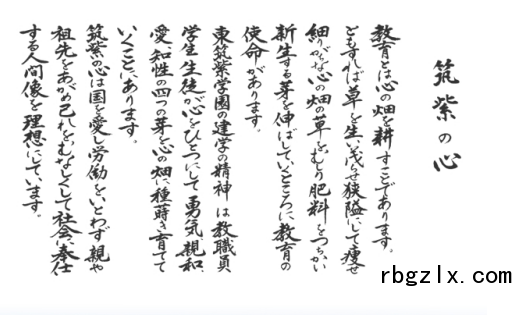 筑紫の心
教育とは心の畑を耕すことであります。
ともすれば草を生い茂らせ狭隘にして痩せ
細りがちな心の畑の草をむしり肥料をつちかい
新生する芽を伸ばしていくところに教育の
使命があります。
東筑紫学園の建学の精神は教職員
学生生徒が心をひとつにして勇気、親和、
愛、知性の四つの芽を心の畑に種蒔き育てて
いくことにあります。
筑紫の心は国を愛し労働をいとわず親や
祖先をあがめ己れをむなしくして社会に奉仕
する人間像を理想にしています。
rbgzlx.com